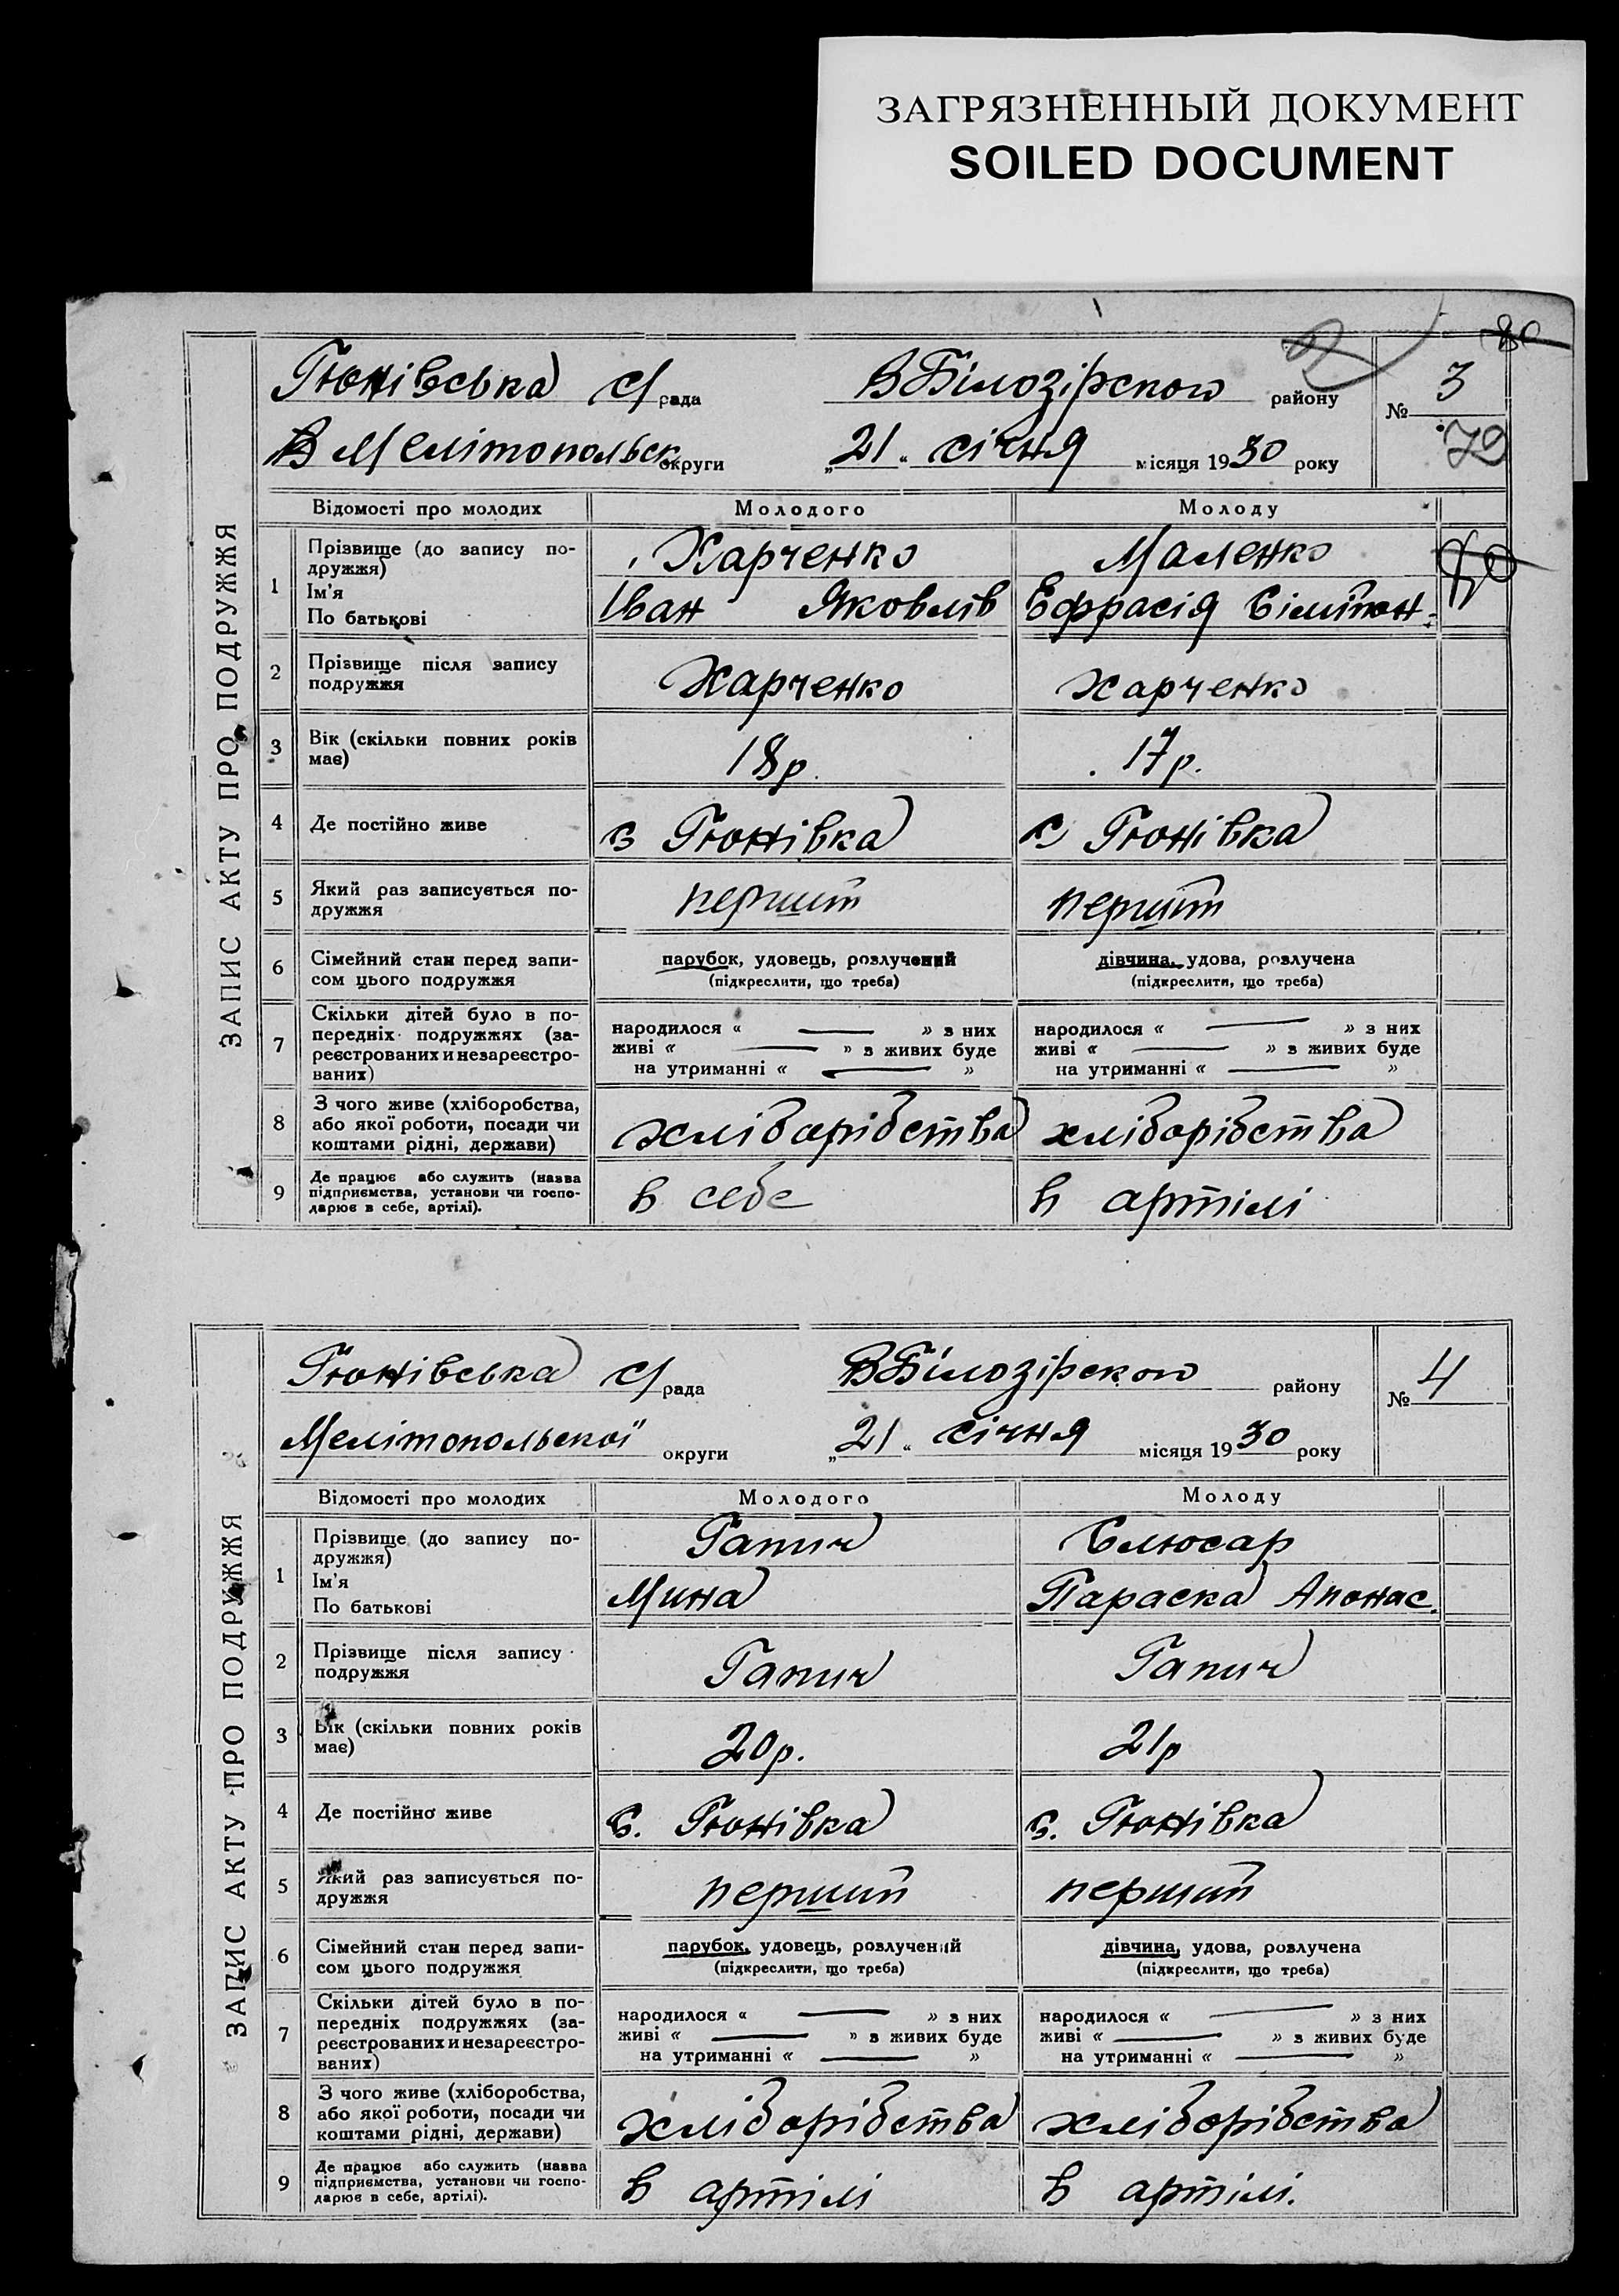 ЗАГРЯЗНЕННЫЙ ДОКУМЕНТ
SOILED DOCUMENT
ЗАПИС АКТУ ПРО ПОДРУЖЖЯ
Гюнівська с/рада ВБілозірскою району № 3
Мелітопольск округи „21“ січня місяця 1930 року
72
Відомості про молодих Молодого Молоду
1 Прізвище (до запису по-
дружжя)
Ім'я
По батькові
Харченко Маленко
Іван Яковлів Ефрасія
2 Прізвище після запису
подружжя
Харченко Харченко
3 Вік (скільки повних років
має)
18р. 17р.
4 Де постійно живе с Гюнівка с Гюнівка
5 Який раз записується по-
дружжя
перший перший
6 Сімейний стан перед запи-
сом цього подружжя
парубок, удовець, розлучений дівчина, удова, розлучена
(підкреслити, що треба) (підкреслити, що треба)
7 Скільки дітей було в по-
передніх подружжях (за-
реєстрованих и незареєстро-
ваних)
народилося « — » з них народилося « — » з них
живі « — » з живих буде живі « — » з живих буде
на утриманні « — » на утриманні « — »
8 З чого живе (хліборобства,
або якої роботи, посади чи
коштами рідні, держави)
хліборібства хліборібства
9 Де працює або служить (назва
підприємства, установи чи госпо-
дарює в себе, артілі).
в себе в артілі
ЗАПИС АКТУ ПРО ПОДРУЖЖЯ
Гюнівська с/рада ВБілозірскою району № 4
Мелітопольскої округи „21“ січня місяця 1930 року
Відомості про молодих Молодого Молоду
1 Прізвище (до запису по-
дружжя)
Ім'я
По батькові
Гапич Слюсар
Мина Параска Апонас.
2 Прізвище після запису
подружжя
Гапич Гапич
3 Вік (скільки повних років
має)
20р. 21р
4 Де постійно живе с. Гюнівка с. Гюнівка
5 Який раз записується по-
дружжя
перший перший
6 Сімейний стан перед запи-
сом цього подружжя
парубок, удовець, розлучений дівчина, удова, розлучена
(підкреслити, що треба) (підкреслити, що треба)
7 Скільки дітей було в по-
передніх подружжях (за-
реєстрованих и незареєстро-
ваних)
народилося « — » з них народилося « — » з них
живі « — » з живих буде живі « — » з живих буде
на утриманні « — » на утриманні « — »
8 З чого живе (хліборобства,
або якої роботи, посади чи
коштами рідні, держави)
хліборібства хліборібства
9 Де працює або служить (назва
підприємства, установи чи госпо-
дарює в себе, артілі).
в артілі в артілі.